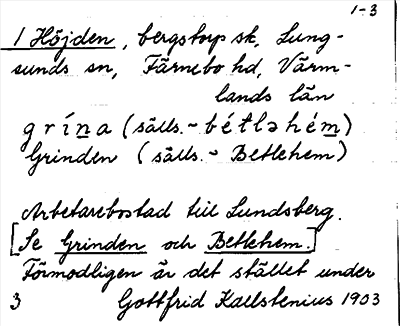 1-3
1 Höjden, bergstorp sk, Lung-
sunds sn, Färnebo hd, Värm-
lands län
grína (sälls. - bétləhém)
Grinden (sälls. - Betlehem)
Arbetarebostad till Lundsberg.
[Se Grinden och Betlehem.]
Förmodligen är det stället under
3 Gottfrid Kallstenius 1903